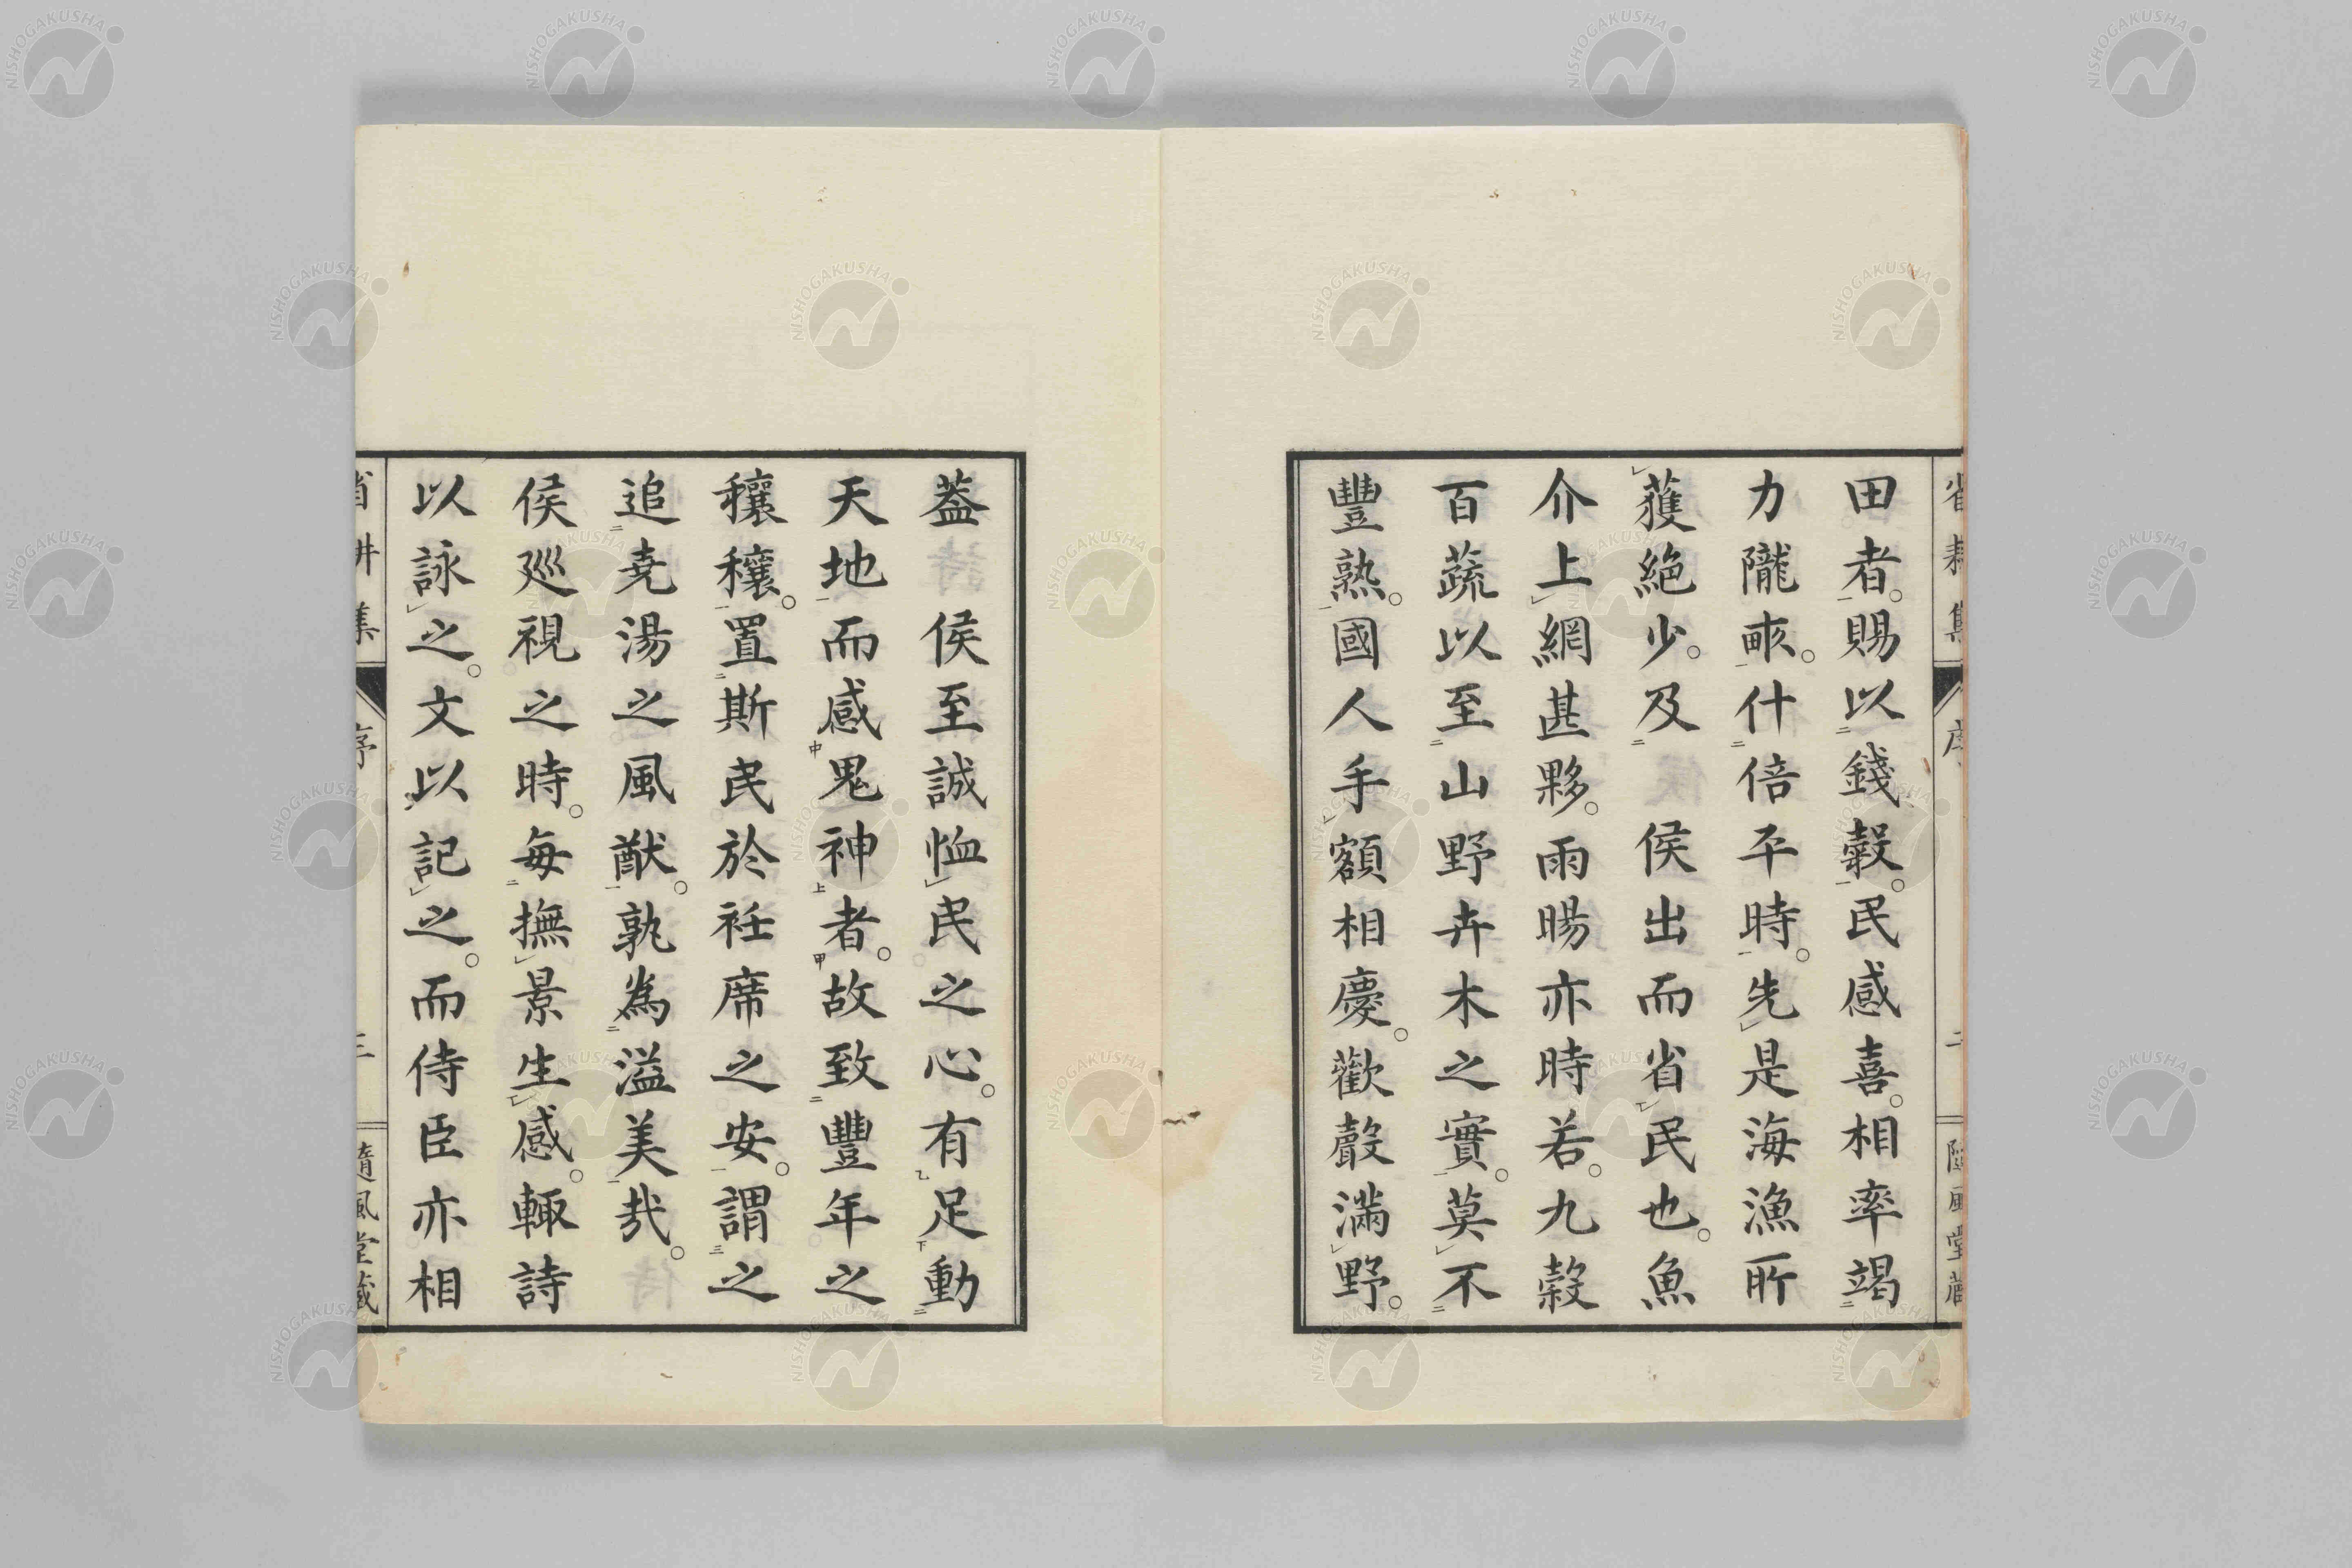 田者。賜以錢穀。民感喜。相率竭
力隴畞。什倍平時。先是海漁所
獲絕少。及　侯出而省民也。魚
介上網甚夥。雨暘亦時若。九穀
百蔬以至山野卉木之實。莫不
豐熟。國人手額相慶。歡聲滿野。
蓋　侯至誠恤民之心。有足動
天地而感鬼神者。故致豐年之
穰穰。置斯民於袵席之安。謂之
追堯湯之風猷。孰為溢美哉。
侯廵視之時。每撫景生感。輙詩
以詠之。文以記之。而侍臣亦相
省耕集
序
三
隨風堂藏
NISHOGAKUSHA